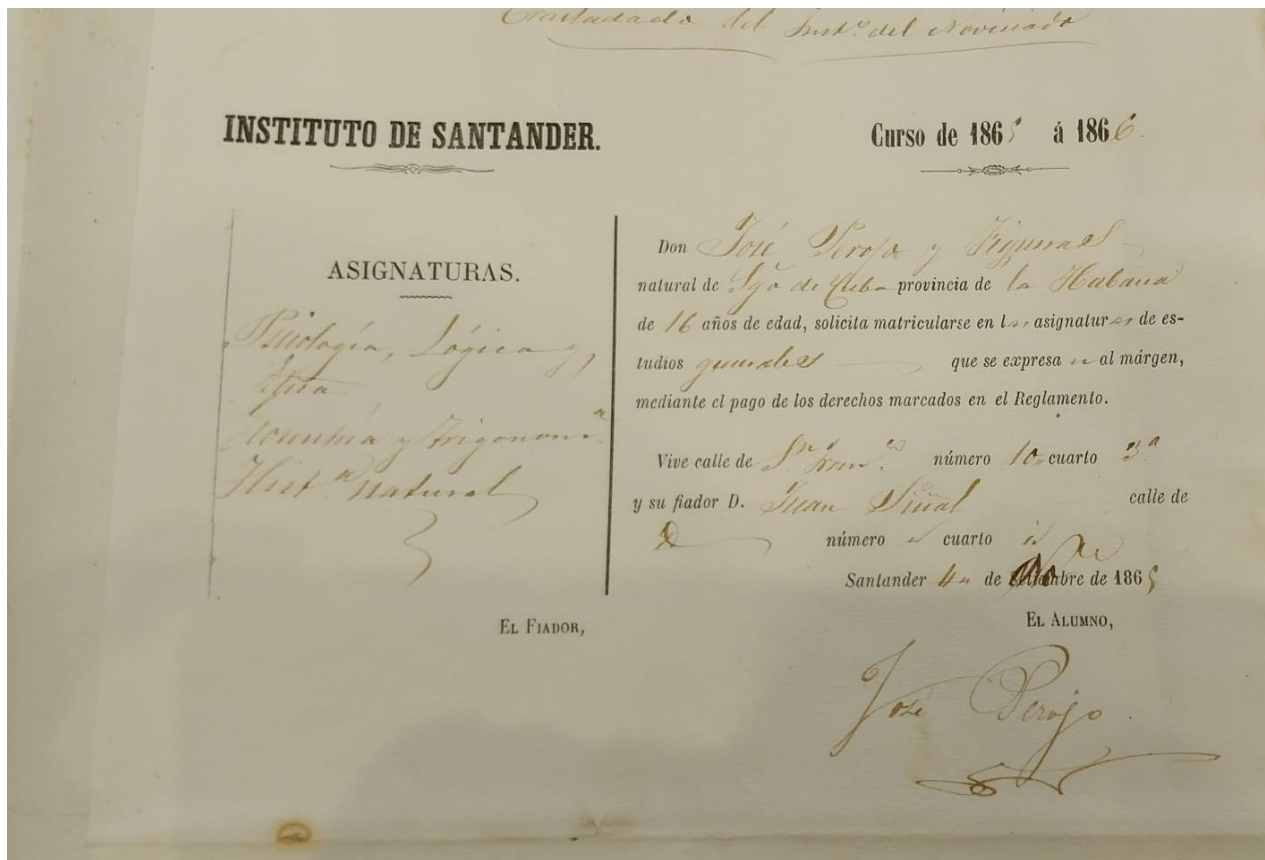 Trasladada del Inst.º del Noviciado
INSTITUTO DE SANTANDER.
Curso de 1865 á 1866
ASIGNATURAS.
Psicología, Lógica y
Ética
y trigonom.ª
Hist.ª natural
Don José Perojo y Figueras
natural de Sgo de Cuba provincia de la Habana
de 16 años de edad, solicita matricularse en las asignaturas de es-
tudios generales que se expresa n al márgen,
mediante el pago de los derechos marcados en el Reglamento.
Vive calle de Sn Franco número 10 cuarto 3º
y su fiador D. Juan calle de
número cuarto
Santander 4 de de 1865
EL FIADOR,
EL ALUMNO,
José Perojo